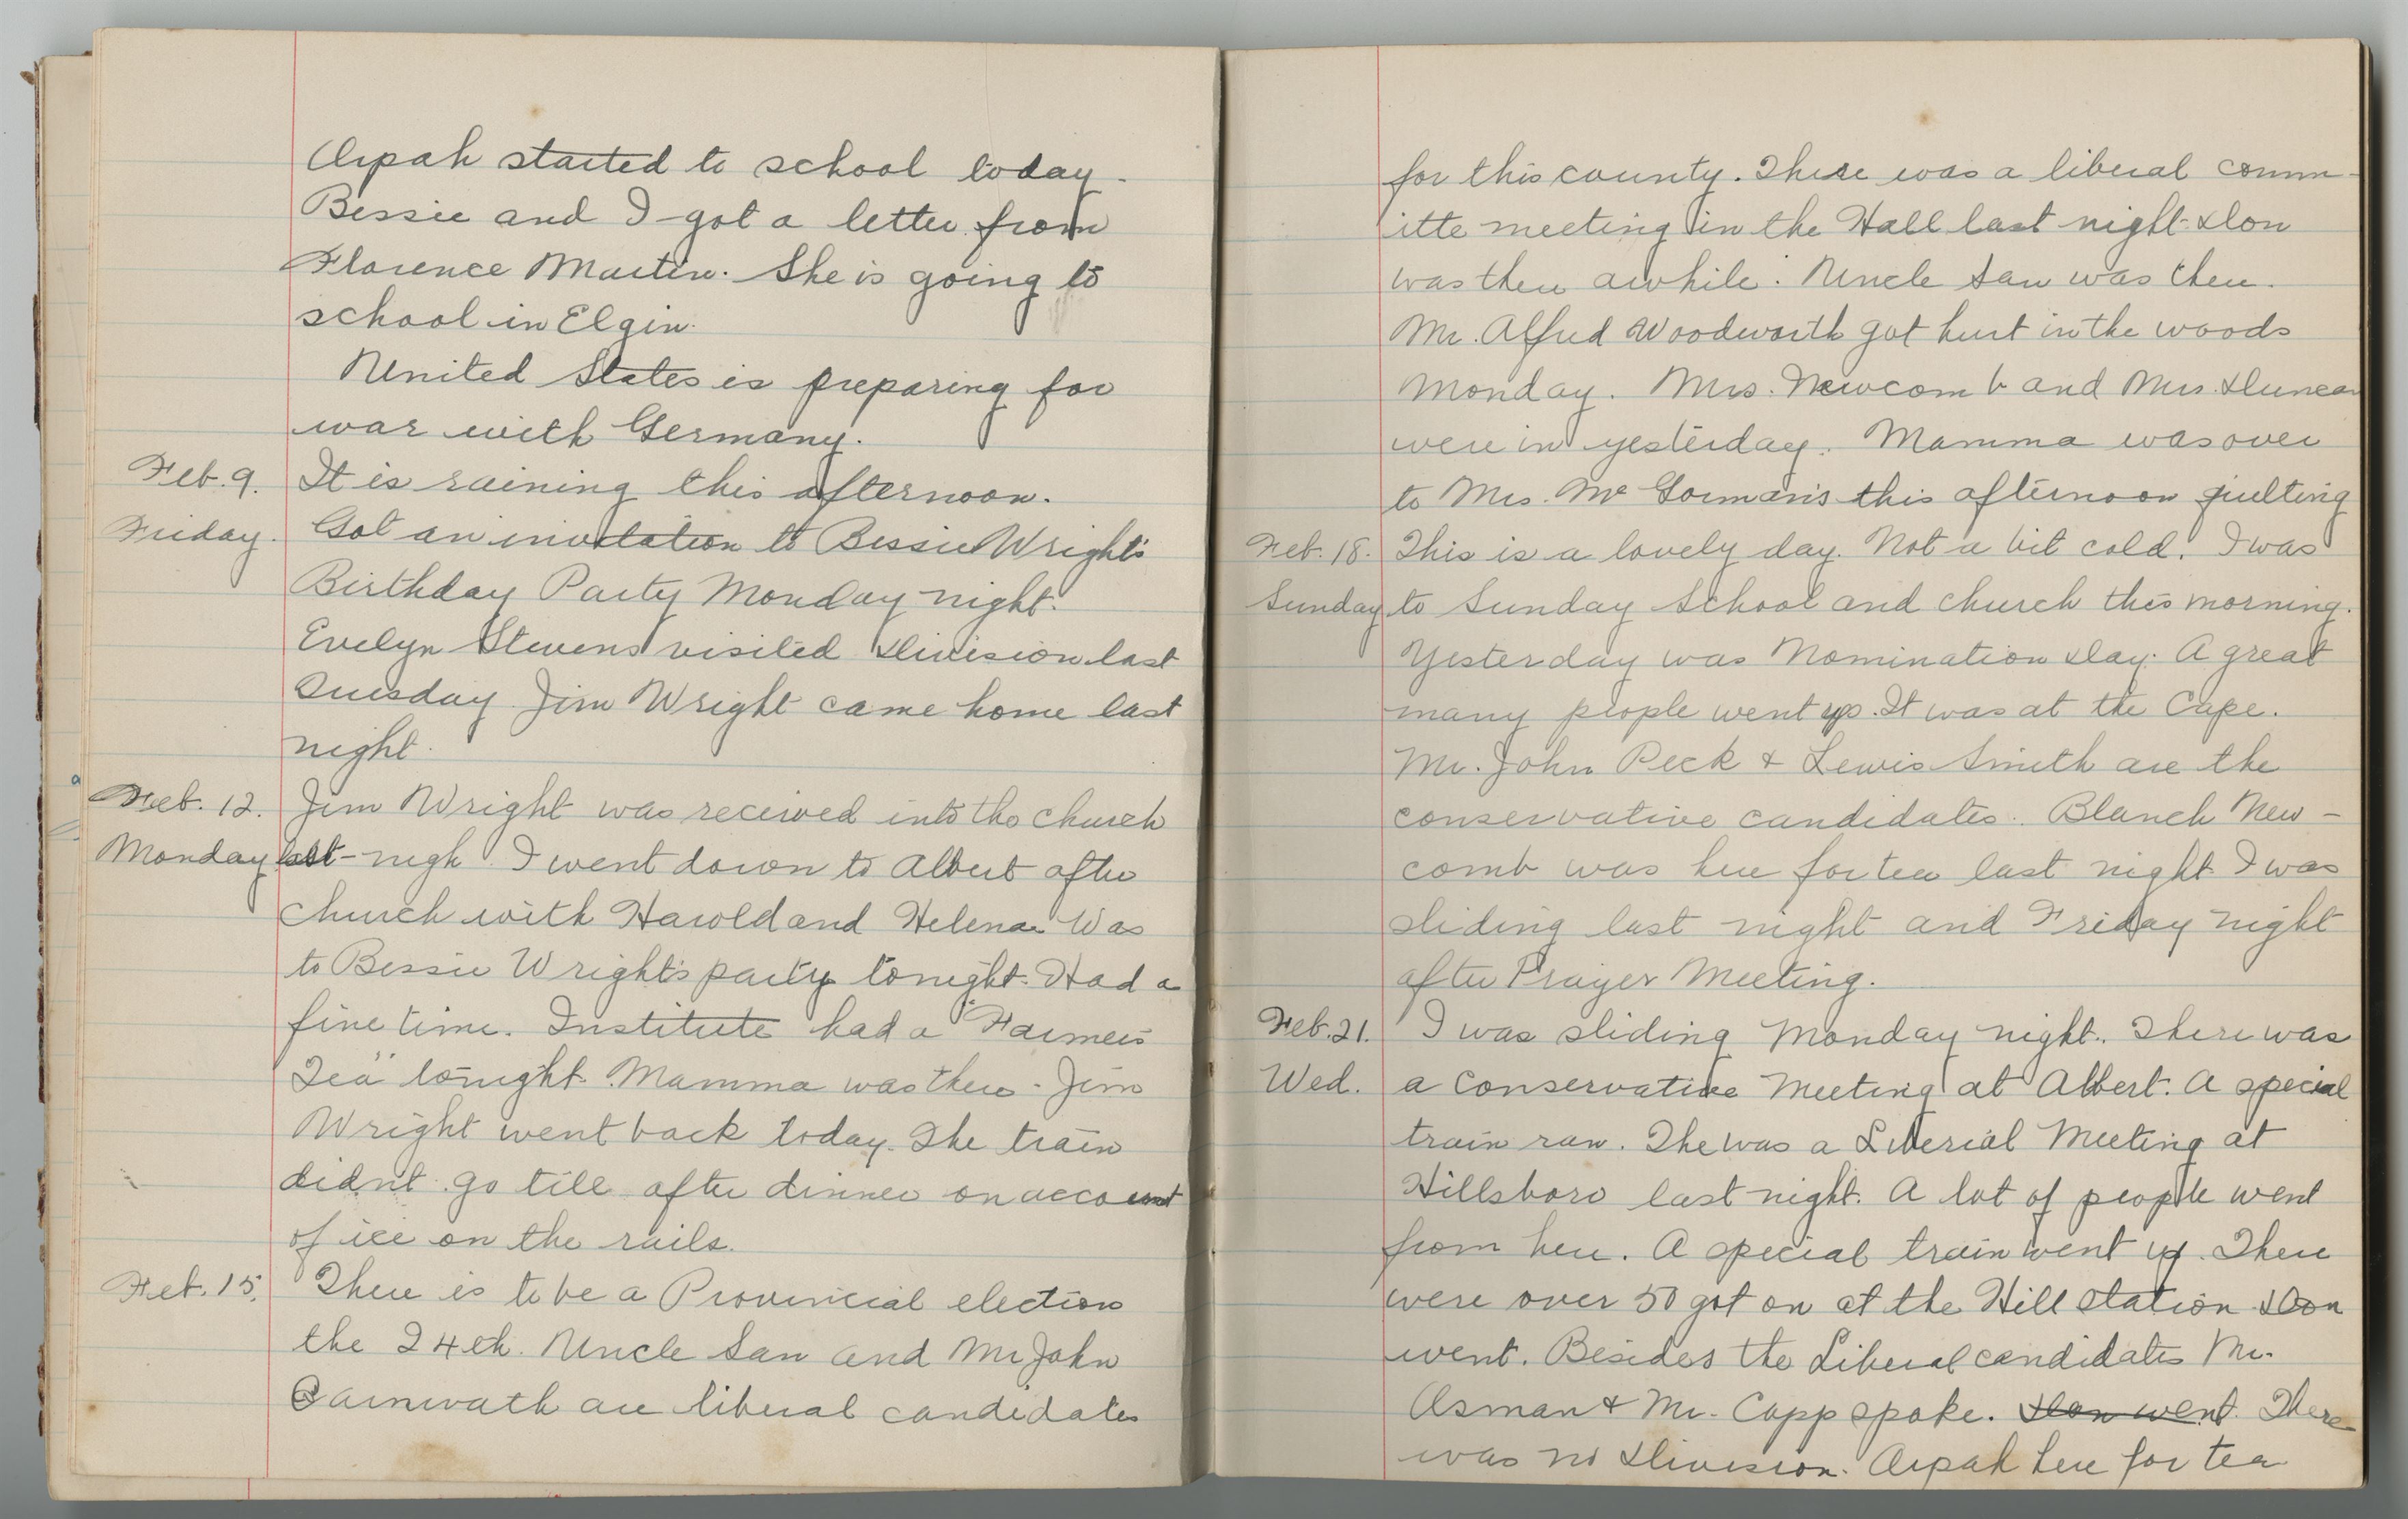 Orpah started to school today.
Bessie and I got a letter from
Florence Martin. She is going to
school in Elgin.
United States is preparing for
war with Germany.
Feb. 9. It is raining this afternoon.
Friday. Got an invitation to Bessie Wright's
Birthday Party Monday night.
Evelyn Stevens visited Division last
Tuesday. Jim Wright came home last
night.
Feb. 12. Jim Wright was received into the church
Monday last nigh I went down to Albert after
church with Harold and Helena. Was
to Bessie Wright's party tonight. Had a
fine time. Institute had a "Farmers
Tea" tonight. Mamma was there. Jim
Wright went back today. The train
didn't go till after dinner on account
of ice on the rails.
Feb. 15. There is to be a Provincial election
the 24th. Uncle San and Mr John
Carnwath are liberal candidates
for this county. There was a liberal comm-
itte meeting in the Hall last night. Don
was there awhile. Uncle San was there.
Mr. Alfred Woodworth got hurt in the woods
Monday. Mrs. Newcomb and Mrs. Duncan
were in yesterday. Mamma was over
to Mrs. McGorman's this afternoon quilting
Feb. 18. This is a lovely day. Not a bit cold. I was
Sunday to Sunday School and church this morning.
Yesterday was Nomination Day. A great
many people went up. It was at the Cape.
Mr. John Peck & Lewis Smith are the
conservative candidates. Blanch New-
comb was here for tea last night. I was
sliding last night and Friday night
after Prayer Meeting.
Feb. 21. I was sliding Monday night. There was
Wed. a conservative Meeting at Albert. A special
train ran. The was a Liberial Meeting at
Hillsboro last night. A lot of people went
from here. A special train went up. There
were over 50 got on at the Hill station. Don
went. Besides the Liberal candidates Mr.
Osman & Mr. Copp spoke. Don went. There
was no Division. Orpah here for tea